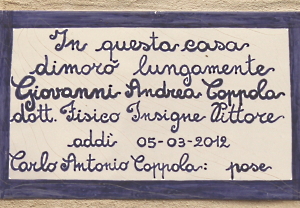 In questa casa
dimorò lungamente
Giovanni Andrea Coppola
dott. Fisico Insigne Pittore
addì 05-03-2012
Carlo Antonio Coppola: pose